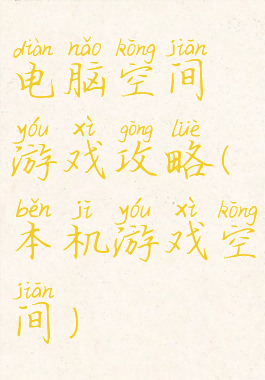 diàn nǎo kōng jiān
电脑空间
yóu xì gōng lüè
游戏攻略(
běn jī yóu xì kōng
本机游戏空
jiān
间)